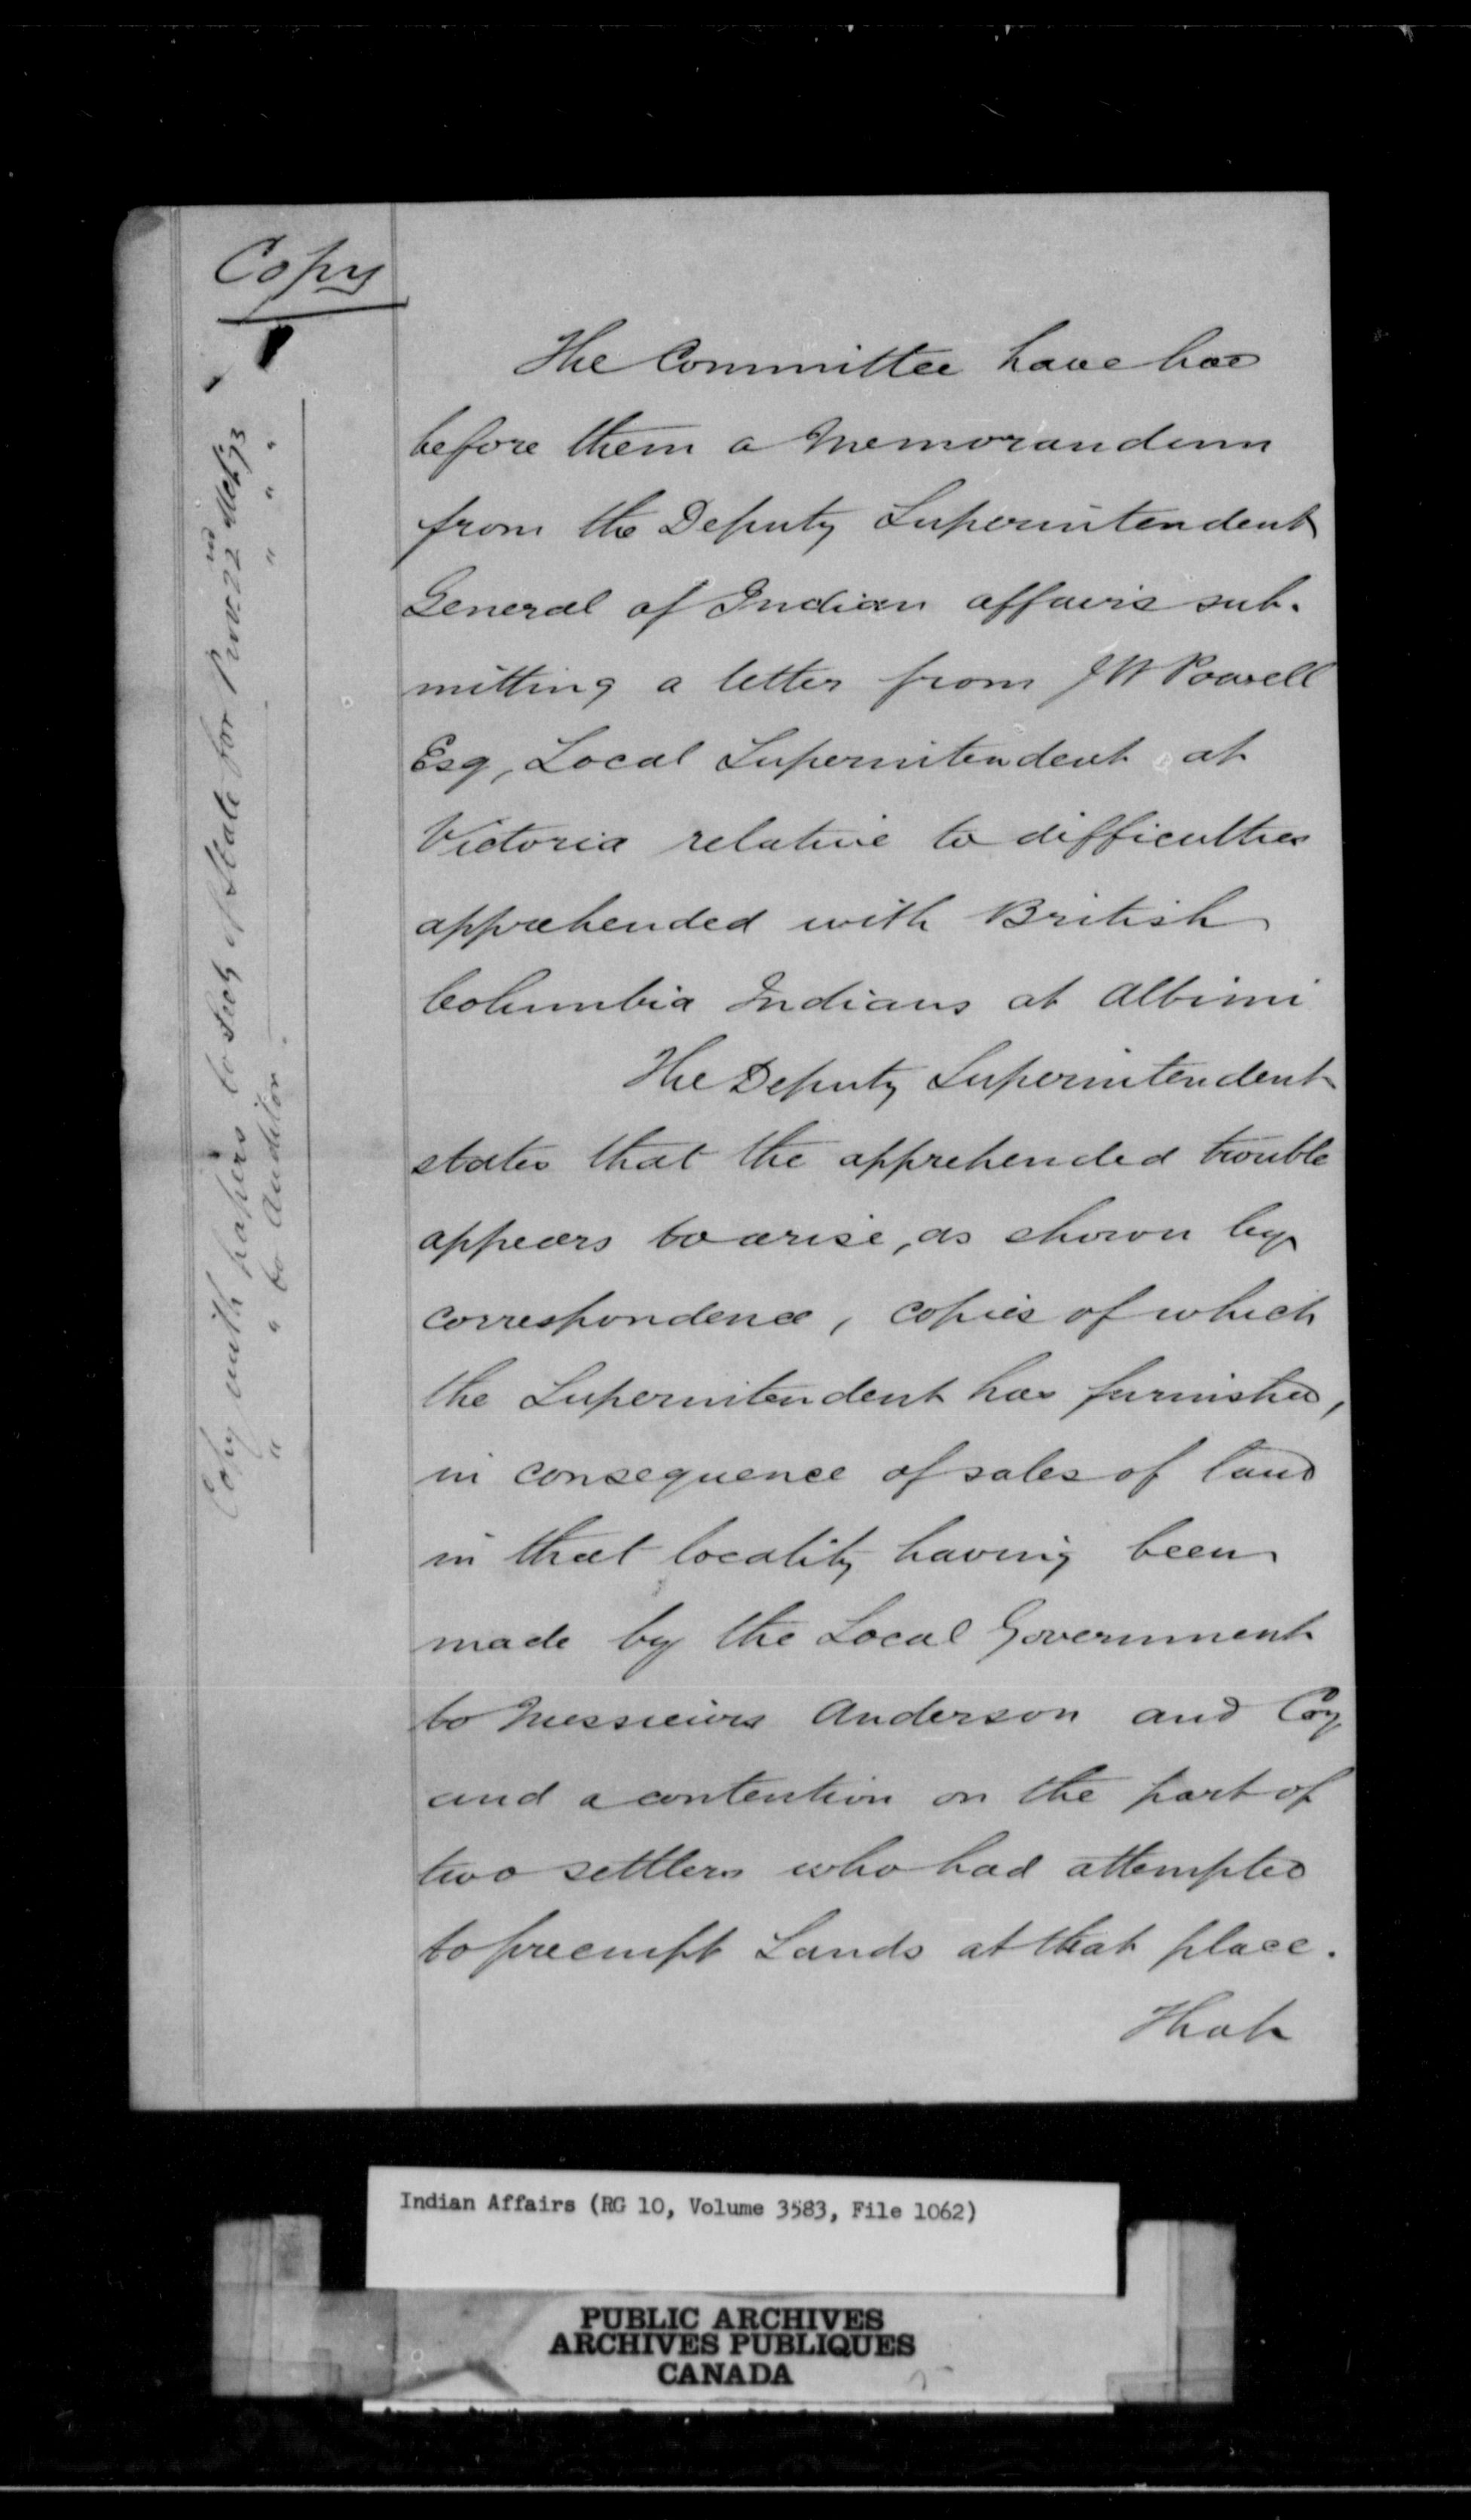 Copy
Copy with papers to Secy of State for Prov. 22nd Mch/73
" " to Auditor " " "
The Committee have had
before them a Memorandum
from the Deputy Superintendent
General of Indian affairs sub-
mitting a letter from J W Powell
Esq, Local Superintendent at
Victoria relative to difficulties
apprehended with British
Columbia Indians at Albirni
The Deputy Superintendent
states that the apprehended trouble
appears to arise, as shown by
correspondence, copies of which
the Superintendent has furnished,
in consequence of sales of land
in that locality having been
made by the Local Government
to Messieurs Anderson and Coy
and a contention on the part of
two settlers who had attempted
to preempt Lands at that place.
That
Indian Affairs (RG 10, Volume 3583, File 1062)
PUBLIC ARCHIVES
ARCHIVES PUBLIQUES
CANADA